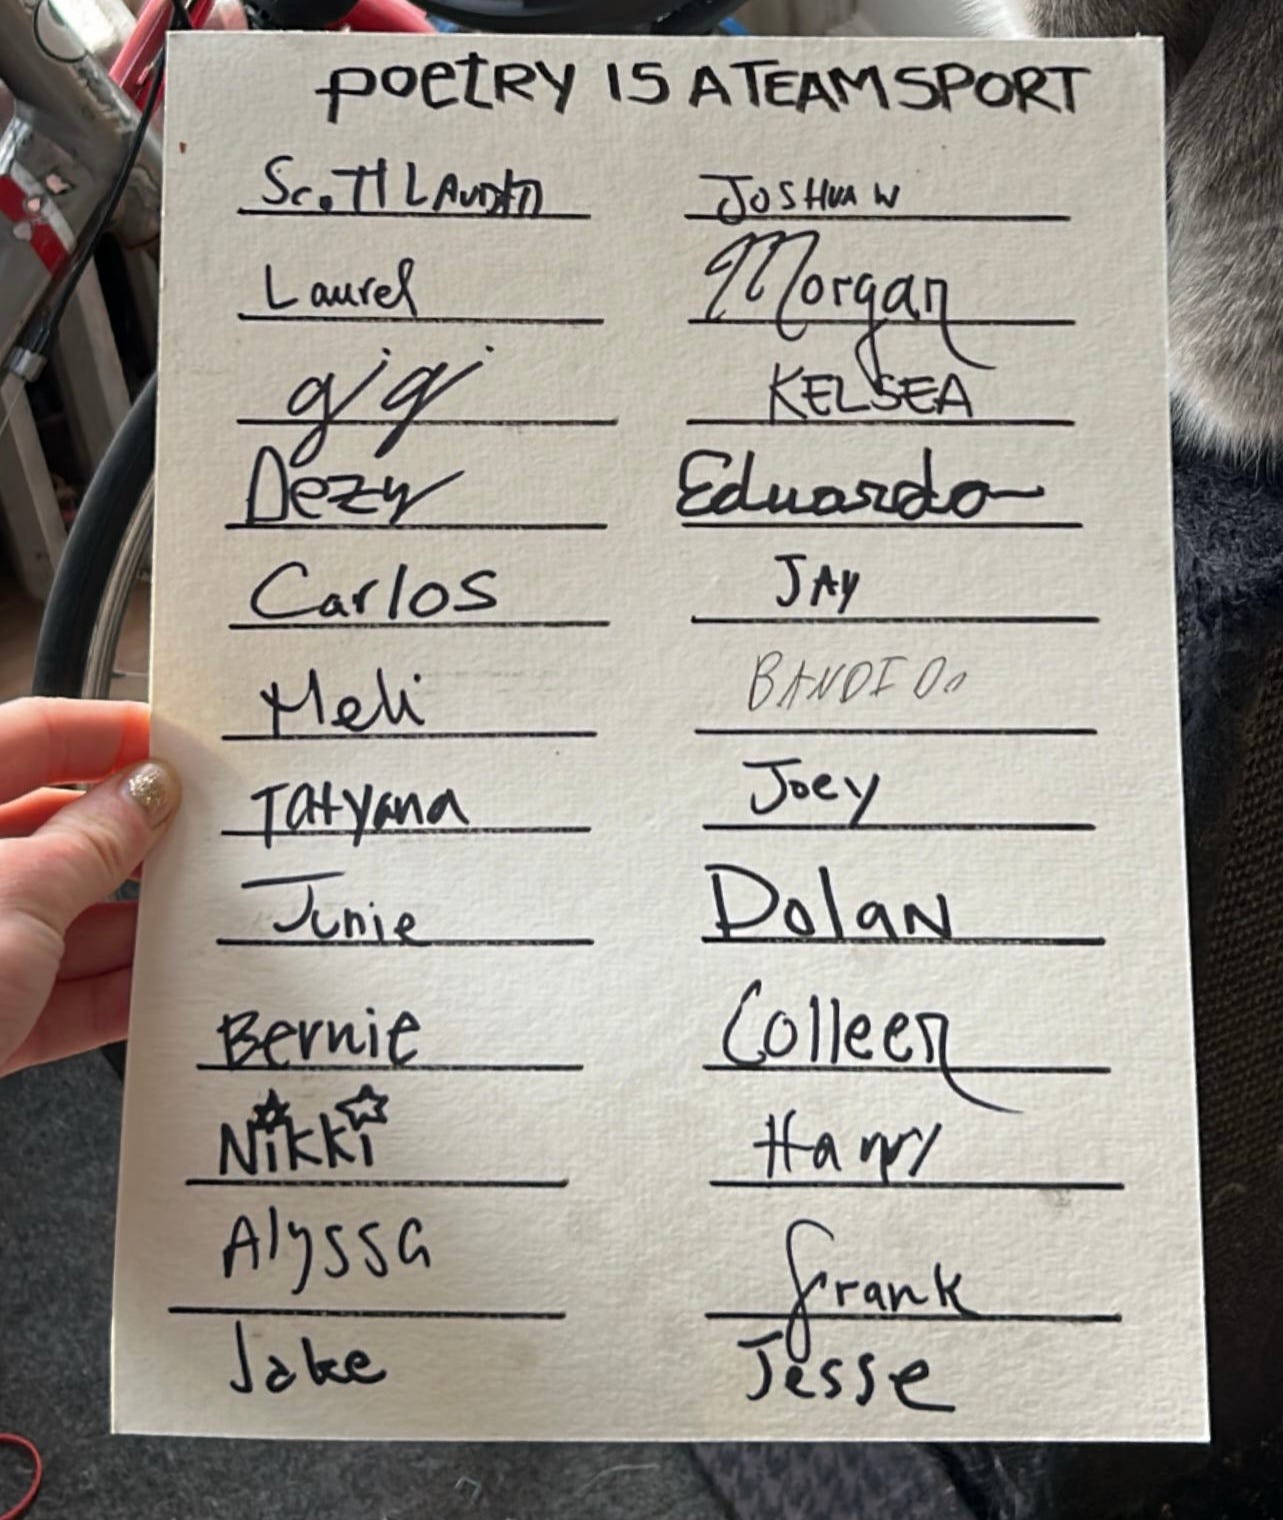 POETRY IS A TEAM SPORT
Scott
JOSHUA W
Laurel
Morgan
gigi
KELSEA
Dezy
Eduardo
Carlos
JAY
Meli
Tatyana
Joey
Junie
Dolan
Bernie
Colleen
Nikki
Harry
Alyssa
Frank
Jake
Jesse